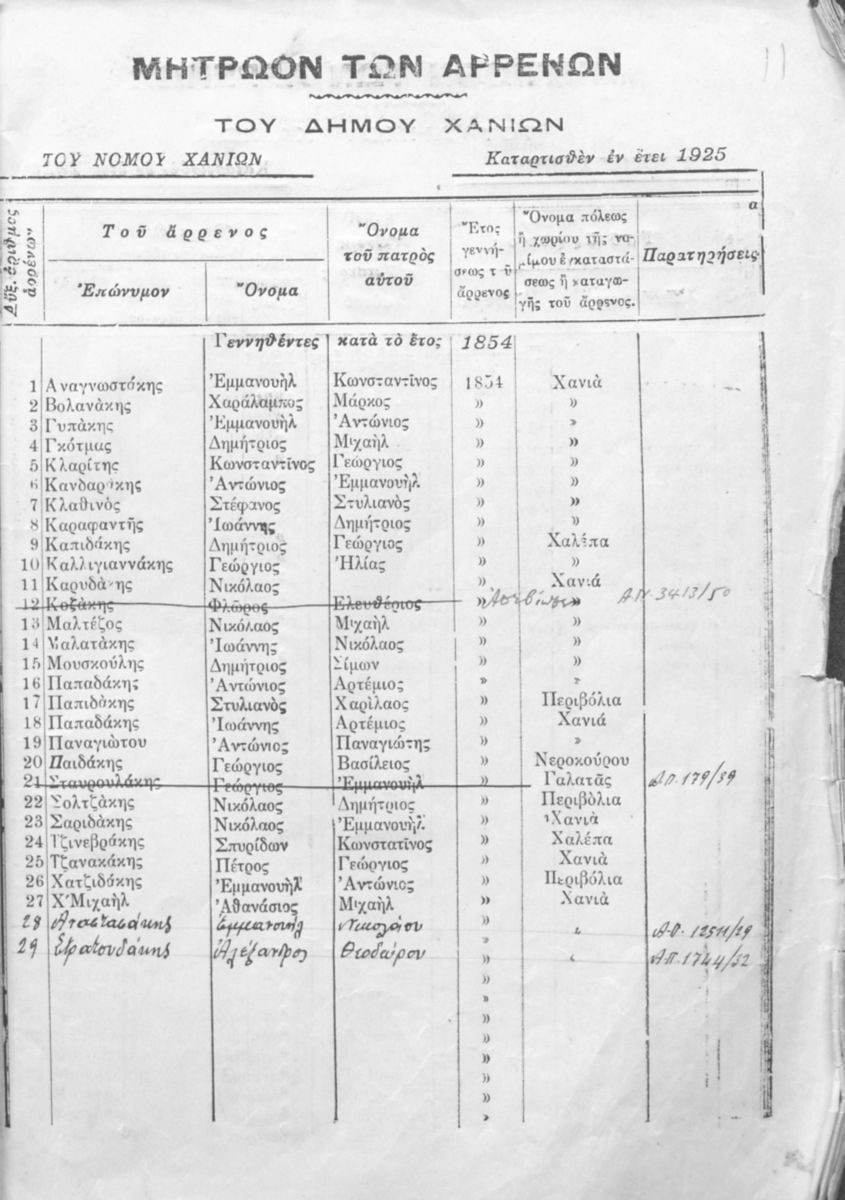 11
ΜΗΤΡΩΟΝ ΤΩΝ ΑΡΡΕΝΩΝ
ΤΟΥ ΔΗΜΟΥ ΧΑΝΙΩΝ
ΤΟΥ ΝΟΜΟΥ ΧΑΝΙΩΝ Καταρτισθὲν ἐν ἔτει 1925
α
Αὔξ. ἀριθμὸς ἀρρένων
Τοῦ ἄρρενος
Ἐπώνυμον Ὄνομα
Ὄνομα τοῦ πατρὸς αὐτοῦ
Ἔτος γεννήσεως τ ῦ ἄρρενος
Ὄνομα πόλεως
ἢ χωρίου τῆς νο-
ίμου ἐγκαταστά-
σεως ἢ καταγω-
γῆς τοῦ ἄρρενος.
Παρατηρήσεις
Γεννηθέντες κατὰ τὸ ἔτος 1854
1 Αναγνωστάκης Ἐμμανουὴλ Κωνσταντῖνος 1854 Χανιὰ
2 Βολανάκης Χαράλαμπος Μάρκος » »
3 Γυπάκης Ἐμμανουὴλ Ἀντώνιος » »
4 Γκότμας Δημήτριος Μιχαὴλ » »
5 Κλαρίτης Κωνσταντῖνος Γεώργιος » »
6 Κανδαράκης Ἀντώνιος Ἐμμανουὴλ » »
7 Κλαθινὸς Στέφανος Στυλιανὸς » »
8 Καραφαντῆς Ἰωάννης Δημήτριος » »
9 Καπιδάκης Δημήτριος Γεώργιος » Χαλέπα
10 Καλλιγιαννάκης Γεώργιος Ἠλίας » »
11 Καρυδάκης Νικόλαος » Χανιά
12 Κοξάκης Φλῶρος Ελευθέριος » Ἀπεβίωσε » Α.Π. 3413/50
13 Μαλτέζος Νικόλαος Μιχαὴλ » »
14 Μαλατάκης Ἰωάννης Νικόλαος » »
15 Μουσκούλης Δημήτριος Σίμων » »
16 Παπαδάκης Ἀντώνιος Αρτέμιος » »
17 Παπιδάκης Στυλιανὸς Χαρίλαος » Περιβόλια
18 Παπαδάκης Ἰωάννης Αρτέμιος » Χανιά
19 Παναγιώτου Ἀντώνιος Παναγιώτης » »
20 Παιδάκης Γεώργιος Βασίλειος » Νεροκούρου
21 Σταυρουλάκης Γεώργιος Ἐμμανουὴλ » Γαλατᾶς Α.Π. 179/39
22 Σολτζάκης Νικόλαος Δημήτριος » Περιβόλια
23 Σαριδάκης Νικόλαος Ἐμμανουὴλ » Χανιὰ
24 Τζινεβράκης Σπυρίδων Κωνστατῖνος » Χαλέπα
25 Τζανακάκης Πέτρος Γεώργιος » Χανιὰ
26 Χατζιδάκης Ἐμμανουὴλ Ἀντώνιος » Περιβόλια
27 Χ"Μιχαὴλ Ἀθανάσιος Μιχαὴλ » Χανιὰ
28 Αναστασάκης Εμμανουὴλ Νικολάου » » Α.Π. 12511/29
29 Στρατουδάκης Ἀλέξανδρος Θεοδώρου » » Α.Π. 1744/32
»
»
»
»
»
»
»
»